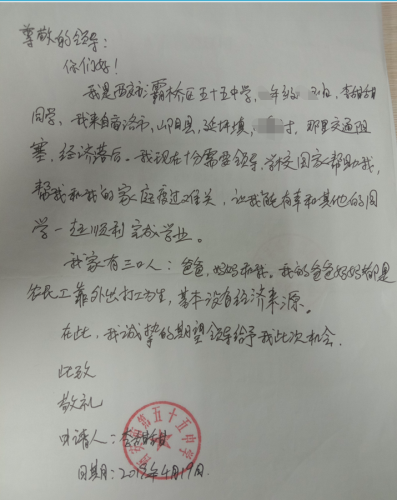 尊敬的领导:
你们好!
我是西安市灞桥区五十五中学,年级班,李甜甜
同学。我来自商洛市,山阳县,延坪填,村,那里交通阻
塞,经济落后。我现在十分需要领导,学校国家帮助我,
帮我和我的家庭度过难关,让我能有幸和其他的同
学一起顺利完成学业。
我家有三口人:爸爸,妈妈和我。我的爸爸妈妈都是
农民工靠外出打工为生,基本没有经济来源。
在此,我诚挚的期望领导给予我此次机会.
此致
敬礼
申请人:李甜甜
日期:年4月19日.
第五十五中学